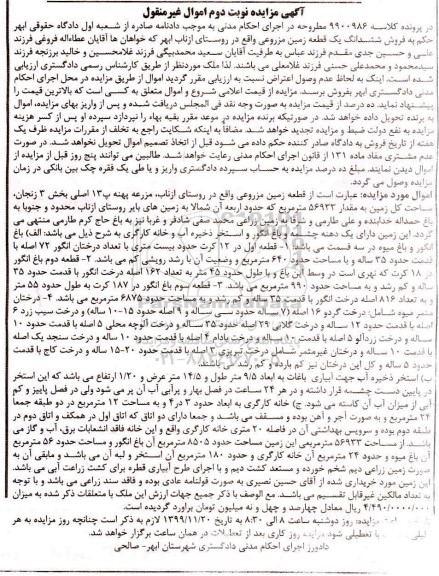 آگهی مزایده نوبت دوم اموال غیرمنقول
در پرونده کلاسه ۹۹۰۰۹۸۶ مطروحه در اجرای احکام مدنی به موجب دادنامه صادره از شعبه اول دادگاه حقوقی ابهر
حکم به فروش ششدانگ یک قطعه زمین مزروعی واقع در روستای ازناب ابهر که خواهان ها آقایان عطااله فروغی فرزند
علسی و حسین جدی مقدم فرزند عباس به طرفیت آقایان سعید محمدبیگی فرزند غلامحسین و خالید برزنجه فرزند
سیدمحمود و محمدعلی حسنی فرزند غلامعلی می باشند. لذا ملک موردنظر از طریق کارشناس رسمی دادگستری ارزیابی
شده است. اینک به لحاظ عدم وصول اعتراض نسبت به ارزیابی مقرر گردید اموال از طریق مزایده در محل اجرای احکام
مدنی دادگستری ابهر بفروش برسد. مزایده از قیمت اعلامی شروع و اموال متعلق به کسی است که بالاترین قیمت را
پیشنهاد نماید. ده درصد از قیمت مزایده به صورت وجه نقد فی المجلس دریافت شده و پس از واریز بهای مزایده، اموال
به برنده تحویل داده خواهد شد. در صورتیکه برنده مزایده در موعد مقرر بقیه بهاء را نپردازد سپرده او پس از کسر هزینه
مزایده به نفع دولت ضبط و مزایده تجدید خواهد شد. مضافا به اینکه شکایت راجع به تخلف از مقررات مزایده ظرف یک
هفته از تاریخ فروش به دادگاه صادر کننده حکم داده می شود قبل از اتخاذ تصمیم اموال تحویل نخواهد شد. در صورت
عدم مشتری مفاد ماده ۱۳۱ از قانون اجرای احکام مدنی رعایت خواهد شد. طالبین می توانند پنج روز قبل از مزایده از
اموال دیدن نمایند. مبلغ ده درصد مزایده به حساب سپرده دادگستری واریز و یا طی یک فقره چک بین بانکی در زمان
مزایده وصول می گردد.
اموال مورد مزایده: عبارت است از قطعه زمین مزروعی واقع در روستای ازناب، مزرعه پهنه پ۱۳ اصلی بخش ۳ زنجان،
مساحت کل زمین به مقدار ۵۶۹۳۳ مترمربع که حدود اربعه آن شمالا به زمین های بایر روستای ازناب محدود و جنوبا به
باغ حمداله خدابنده و علی طارمی و شرقا زمین زراعی سعید صفی شادفر و غربا نیز به باغ حاج کرم طارمی منتهی می
گردد. این زمین دارای یک دهنه چاه آب و باغ انگور و استخر ذخیره آب و خانه کارگری به شرح ذیل می باشد: الف) باغ
انگور و باغ میوه در سه قسمت می باشد: ۱- قطعه اول در ۱۲ کرت حدود بیست متری با تعداد درختان انگور ۷۲ اصله با
قدمت حدود ۳۵ ساله و با مساحت حدود ۶۴۰ مترمربع و وضعیت آن با رشد رویشی کم می باشد. ۲- قطعه دوم باغ انگور
در ۱۸ کرت که نهری است در وسط این باغ و با طول حدود ۴۵ متر به تعداد ۱۶۲ اصله درخت انگور با قدمت حدود ۳۵
ساله و کم رشد و به مساحت حدود ۹۹۰ مترمربع می باشد. ۳- قطعه سوم باغ انگور در ۱۸۷ کرت به طول حدود ۵۵ متر
و به تعداد ۸۱۶ اصله درخت انگور با قدمت ۳۵ ساله و کم رشد و به مساحت حدود ۶۸۷۵ مترمربع می باشد. ۴- درختان
مثمر میوه شامل: درخت گردو ۱۶ اصله (۷ اصله حدود سی ساله و ۹ اصله حدود ۱۵-۱۰ ساله) و درخت سیب زرد ۶
اصله با قدمت حدود ۱۲ ساله و درخت گلابی ۲۹ اصله حدود ۳۵ ساله و درخت آلوچه محلی ۵ اصله با قدمت حدود ۱۰
ساله و درخت زردآلو ۵ اصله با قدمت ۱۰ ساله و درخت بادام ۴ اصله با قدمت حدود ۱۰ ساله و درخت سنجد یک اصله
با قدمت ۱۰ ساله و درختان غیرمثمر شامل درخت تبریزی ۳ اصله با قدمت حدود ۲۰-۱۵ ساله و درخت کاج با قدمت
حدود ۵ ساله و کل این درختان نیز کم بازده و کم رشد می باشند.
ب) استخر ذخیره آب جهت آبیاری باغات به ابعاد ۹/۵ متر طول و ۱۴/۵ متر عرض و ۱/۲۰ ارتفاع می باشد که این استخر
در پایین دست چشمه قرار داشته و در هر ۲۴ ساعت در فصل بهار و پرآبی آب آن پر می شود ولی در فصل پاییز و کم
آبی از میزان آب آن کاسته می شود. ج) خانه کارگری به ابعاد حدود ۳ در ۴ و به مساحت ۱۲ مترمربع در دو طبقه جمعا
۲۴ مترمربع و به صورت آجر و آهن بوده و مسقف می باشد و جمعا دارای دو اتاق که اتاق اول در همکف و اتاق دوم در
طبقه دوم بوده و سرویس بهداشتی آن در فاصله ۲۰ متری خانه کارگری واقع و این خانه فاقد انشعابات برق، آب و گاز می
باشد. از مساحت ۵۶۹۳۳ مترمربعی این زمین مساحت حدود ۸۵۰۵ مترمربع آن باغ انگور و مساحت حدود ۵۶ مترمربع
آن باغ میوه و حدود ۲۴ مترمربع آن خانه کارگری و حدود ۱۸۰ مترمربع آن استخر و لبه آن می باشد و مابقی آن به
صورت زمین زراعی دیم شخم خورده و مستعد کشت دیم و با اجرای طرح آبیاری قطره برای کشت زراعت آبی می باشد.
این زمین مورد خریداری شده از آقای حسین نصیری به صورت قولنامه عادی بوده و فاقد سند زراعی می باشد و با توجه
به تعداد مالکین غیرقابل تقسیم می باشد. مع الوصف با ذکر جمیع جهات ارزش این ملک با متعلقات ذکر شده به میزان
۴/۴۹۰/۰۰۰/۰۰۰ ریال معادل چهارصد و چهل و نه میلیون تومان برآورد گردیده است.
مزایده: روز دوشنبه ساعت ۸ الی ۸:۳۰ به تاریخ ۱۳۹۹/۱۱/۲۰ لازم به ذکر است چنانچه روز مزایده به هر
با تعطیلی شود مزایده روز کاری بعد از تعطیلات در همان ساعت برگزار خواهد شد.
دادورز اجرای احکام مدنی دادگستری شهرستان ابهر- صالحی